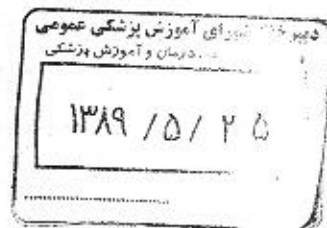 دبیرخانه شورای آموزش پزشکی عمومی
درمان و آموزش پزشکی
۱۳۸۹ / ۵ / ۲۵